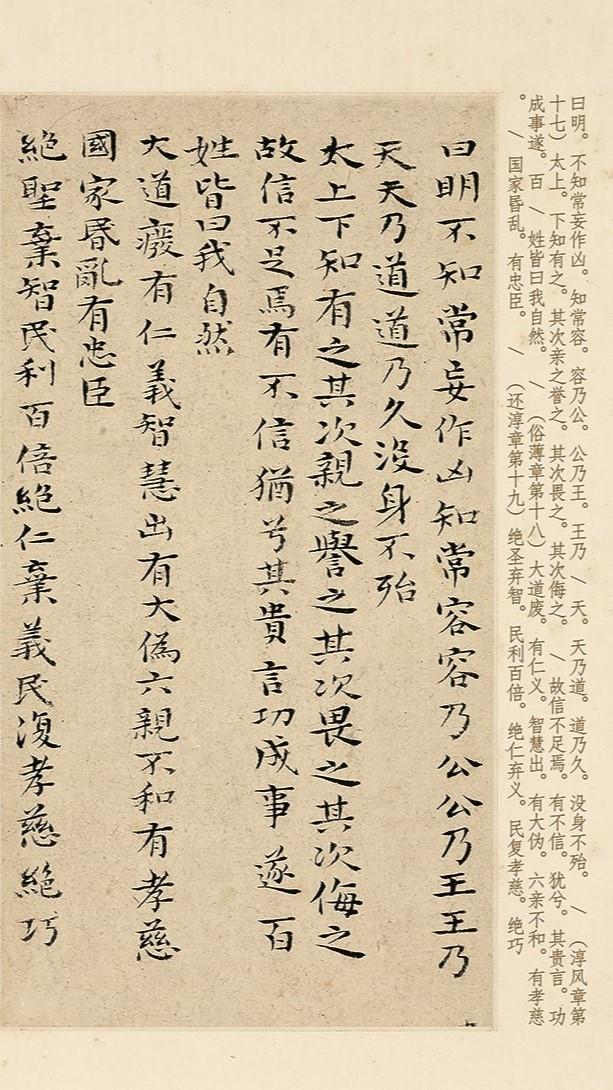 曰明。不知常妄作凶。知常容。容乃公。公乃王。王乃 / 天。天乃道。道乃久。没身不殆。 / (淳风章第
十七)太上。下知有之。其次亲之誉之。其次畏之。其次侮之。 / 故信不足焉。有不信。犹兮。其贵言。功
成事遂。百 / 姓皆曰我自然。 / (俗薄章第十八)大道废。有仁义。智慧出。有大伪。六亲不和。有孝慈
。 / 国家昏乱。有忠臣。 / (还淳章第十九)绝圣弃智。民利百倍。绝仁弃义。民复孝慈。绝巧
曰明不知常妄作凶知常容容乃公公乃王王乃
天天乃道道乃久沒身不殆
太上下知有之其次親之譽之其次畏之其次侮之
故信不足焉有不信猶兮其貴言功成事遂百
姓皆曰我自然
大道廢有仁義智慧出有大偽六親不和有孝慈
國家昬亂有忠臣
絕聖棄智民利百倍絕仁棄義民復孝慈絕巧